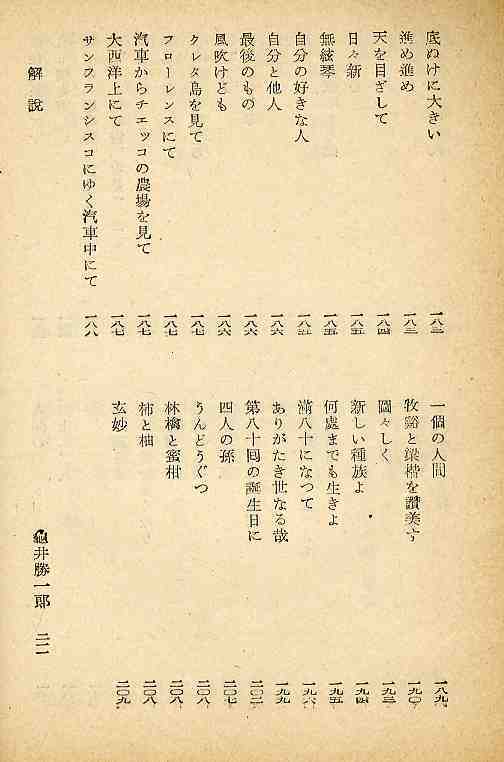 底ぬけに大きい 一八三
進め進め 一八三
天を目ざして 一八四
日々新 一八五
無絃琴 一八五
自分の好きな人 一八五
自分と他人 一八六
最後のもの 一八六
風吹けども 一八六
クレタ島を見て 一八七
フローレンスにて 一八七
汽車からチェッコの農場を見て 一八七
大西洋上にて 一八七
サンフランシスコにゆく汽車中にて 一八八
一個の人間 一八九
牧谿と梁楷を讃美す 一九〇
圖々しく 一九三
新しい種族よ 一九四
何處までも生きよ 一九五
滿八十になつて 一九六
ありがたき世なる哉 一九九
第八十囘の誕生日に 二〇二
四人の孫 二〇七
うんどうぐつ 二〇八
林檎と蜜柑 二〇八
柿と柚 二〇八
玄妙 二〇九
解說 龜井勝一郎 二一一